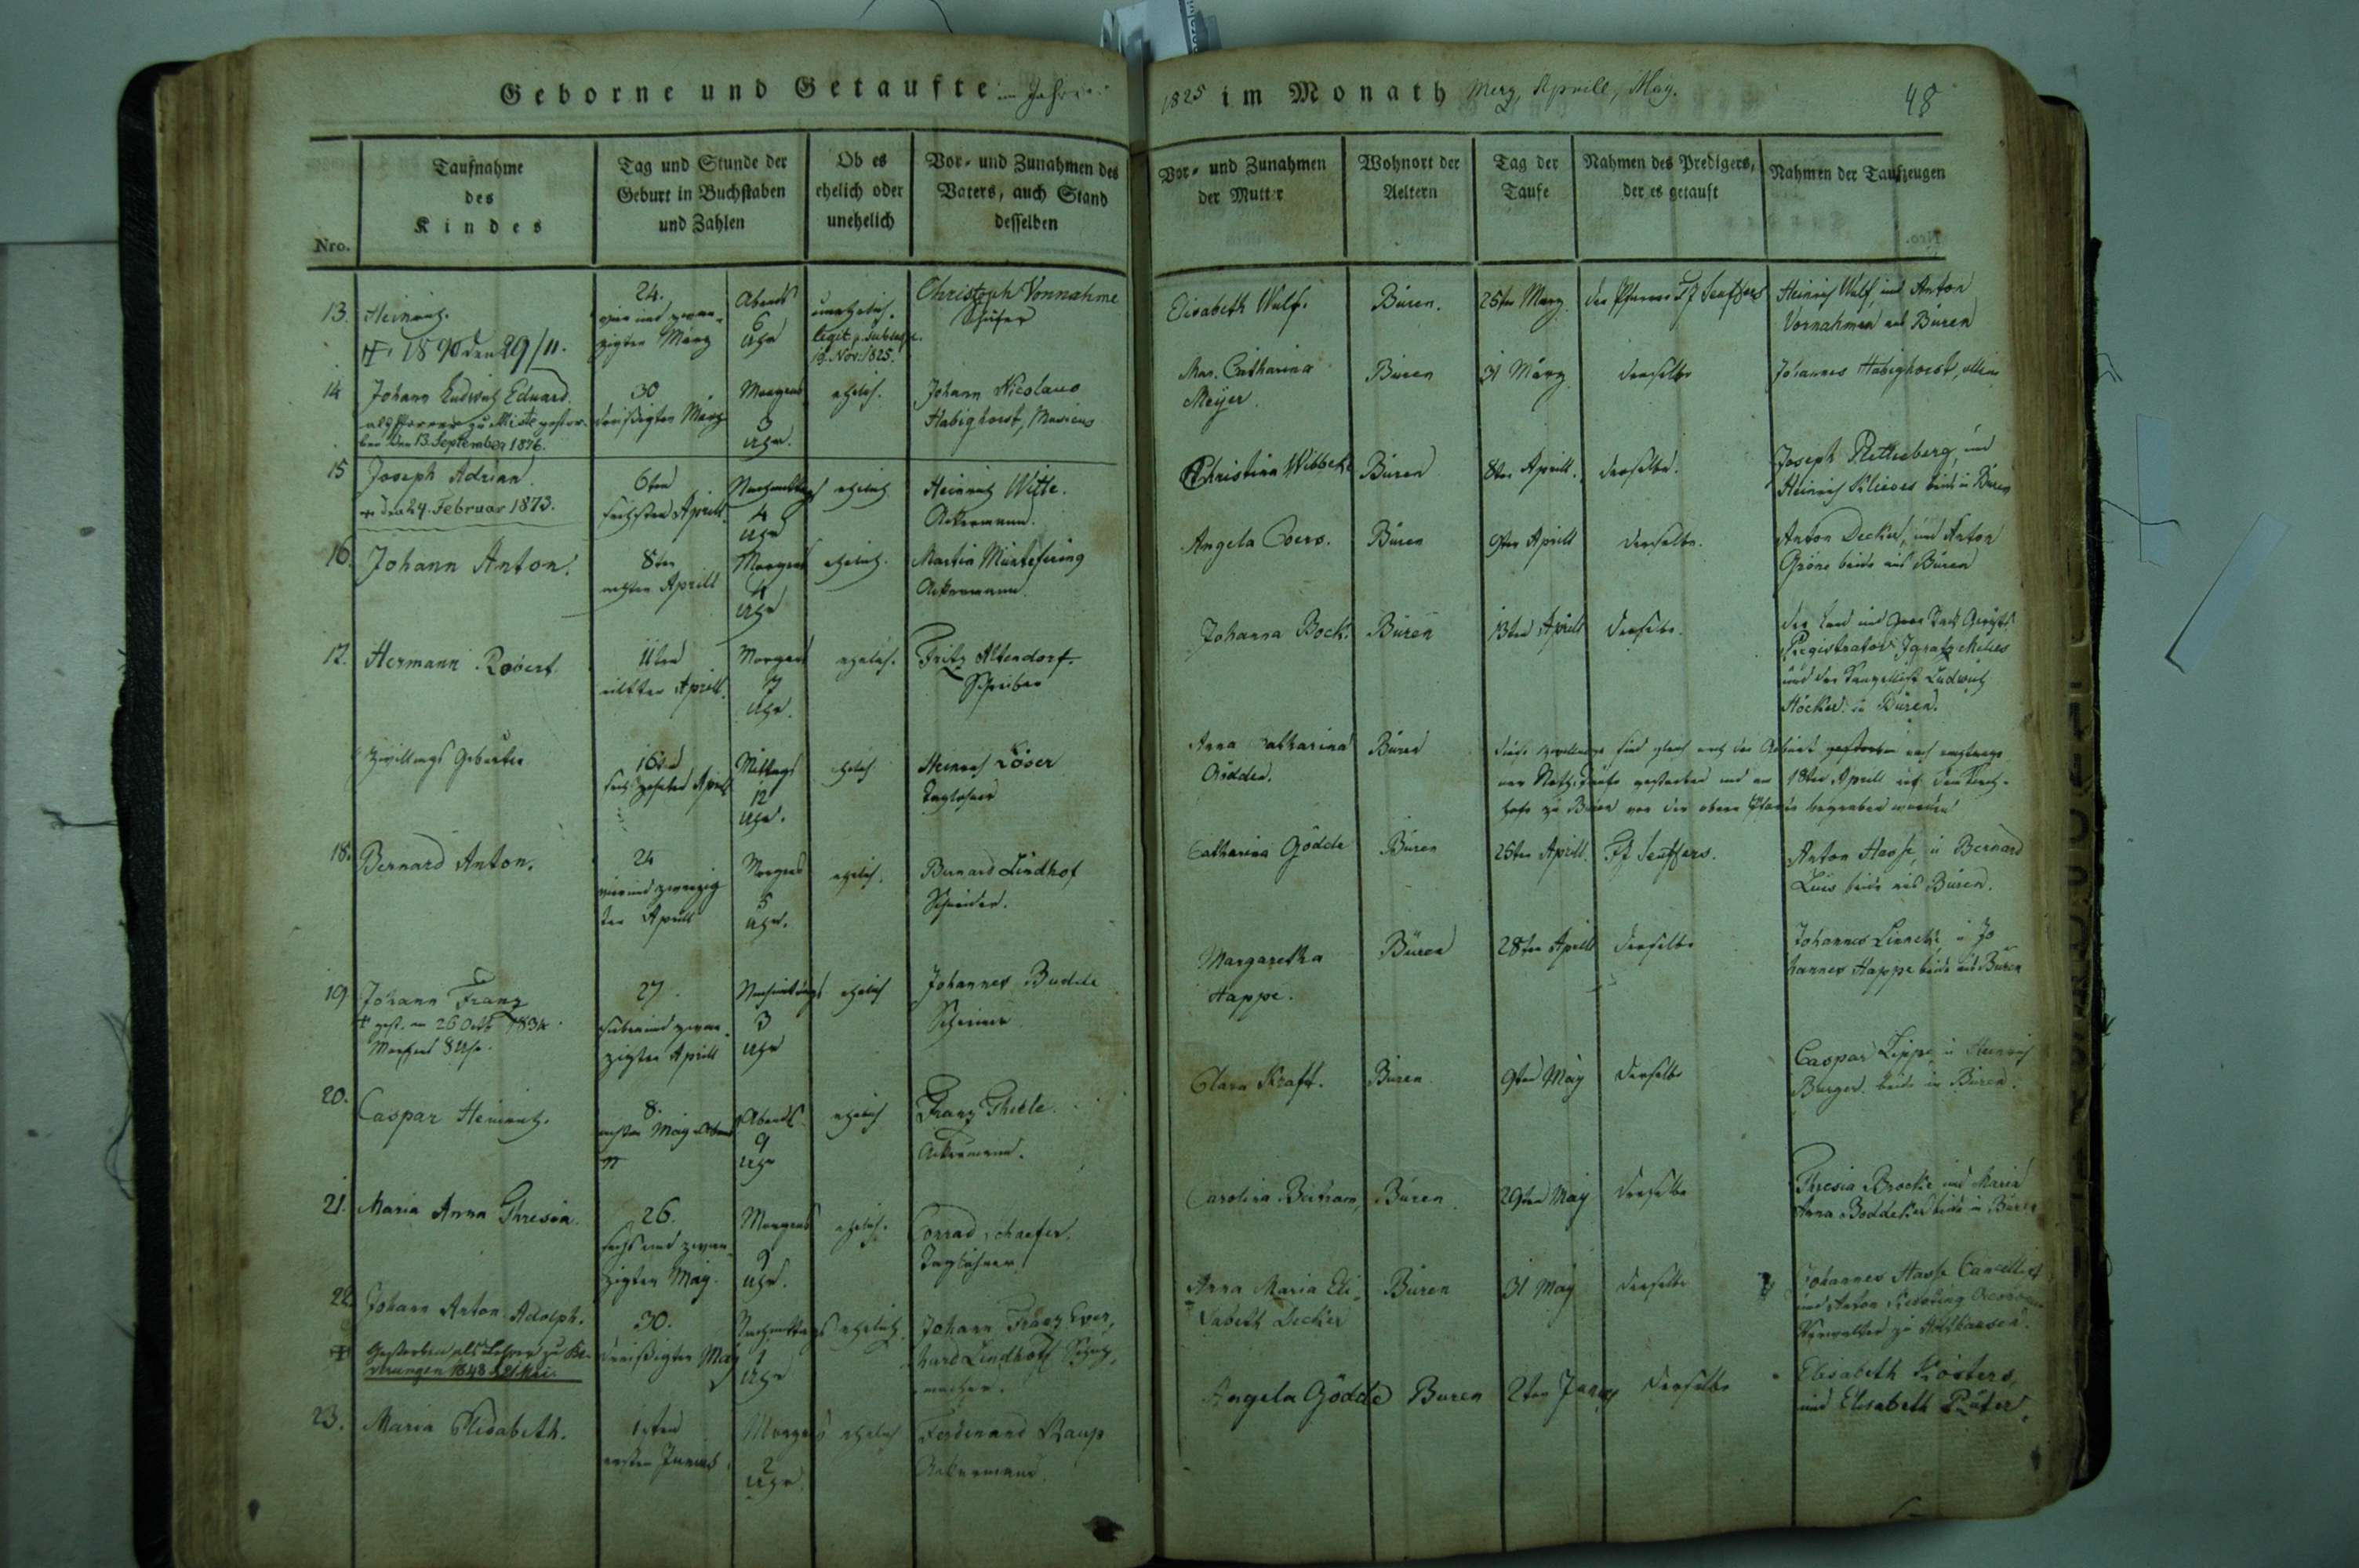 Geborne und Getaufte im Jahre
1825 im Monath Merz, Aprill, May.
48
Nro.
Taufnahme
des
Kindes
Tag und Stunde der
Geburt in Buchstaben
und Zahlen
Ob es
ehelich oder
unehelich
Vor- und Zunahmen des
Vaters, auch Stand
desselben
Vor- und Zunahmen
der Mutter
Wohnort der
Aeltern
Tag der
Taufe
Nahmen des Predigers,
der es getauft
Nahmen der Taufzeugen
13. Heinrich.
1890 den 29/11.
24.
vier und zwan-
zigten März
Abends
6
Uhr
unehelich.
legit. p. subseq.
19. Nov. 1825.
Christoph Vonnahme
Schäfer
Elisabeth Wulf.
Büren.
25ten Merz
der Pfarrer
Heinrich Wulf, und Anton
Vornahmen aus Büren
14 Johann Ludwich Eduard.
als Pfarrer zu Miste gestor-
ben den 13. September 1876.
30
dreißigten März
Morgens
3
Uhr.
ehelich.
Johann Nicolaus
Habighorst, Musicus
Mar. Catharina
Meyer.
Büren
31 März
derselbe
Johannes Habighorst,
15 Joseph Adrian
den 24. Februar 1873.
6ten
sechsten Aprill.
Nachmittags
4
Uhr
ehelich
Heinrich Witte.
Ackermann.
Christina Wibbeke
Büren
8ten Aprill.
derselbe.
Joseph Rettelberg, und
Heinrich Klieves beide in Büren
16. Johann Anton.
8ten
achten Aprill
Morgens
4
Uhr
ehelich.
Martin Müntefering
Ackermann
Angela Evers.
Büren
9ten Aprill
derselbe.
Anton Decker, und Anton
Gröne beide aus Büren
17. Hermann Robert.
11ten
eilften Aprill.
Morgens
7
Uhr.
ehelich.
Fritz Altendorf.
Schreiber
Johanna Bock.
Büren
13ten Aprill
derselbe.
der Land und Stadt Gerichts
Registrator
und der Canzellist Ludwich
Höcker in Büren.
Zwillings Geburten
16ten
sechszehnten Aprill
Mittags
12
Uhr.
ehelich
Heinrich Löser
Taglöhner
Anna Catharina
Gödden.
Büren
diese Zwillinge sind gleich nach der Geburt gestorben nach empfange-
ner Noth-Taufe gestorben und am 18ten Aprill auf dem Kirch-
hofe zu Büren vor der obern Pforte begraben worden
18. Bernard Anton.
24
vier und zwanzig
ten Aprill
Morgens
5
Uhr.
ehelich.
Bernard Lindhof
Schneider.
Catharina Gödde
Büren
25ten Aprill.
Anton Hasse, u Bernard
beide aus Büren.
19 Johann Franz
gest. am 26 Octb 1834
Morgens 8 Uhr.
27.
siebenund zwan-
zigten Aprill
Nachmittags
3
Uhr
ehelich
Johannes Budde
Schreiner
Margaretha
Happe.
Büren
28ten Aprill
derselbe
Johannes Linneke, u Jo
hannes Happe beide aus Büren
20. Caspar Heinrich.
8.
achten May Abend
Abends
9
Uhr
ehelich
Franz Thiele
Ackermann.
Clara Kraft.
Büren
9ten May
derselbe
Caspar Lippe, u Heinrich
Burger beide in Büren.
21. Maria Anna Thresia.
26.
sechs und zwan-
zigten May.
Morgens
9
Uhr.
ehelich.
Conrad Schaefer.
Taglöhner
Carolina Bertram,
Büren.
29ten May
derselbe
Thresia Brocke und Maria
Anna Böddeker beide in Büren
22. Johann Anton Adolph.
Gestorben als Lehrer zu Be-
verungen 1848 d. 21. Mai.
30.
dreißigten May
Nachmittags
1
Uhr
ehelich.
Johann Franz Ever-
hard Lindhoff Schuh-
macher.
Anna Maria Eli-
sabeth Decker
Büren
31 May
derselbe
Johannes Hasse Cancellist
und Anton
Verwalter zu
23. Maria Elisabeth.
1sten
ersten Junius
Morgens
2
Uhr
ehelich
Ferdinand Kaup
Ackermann.
Angela Gödde
Buren
2ten Juny
derselbe
Elisabeth Kösters,
und Elisabeth Rüter.